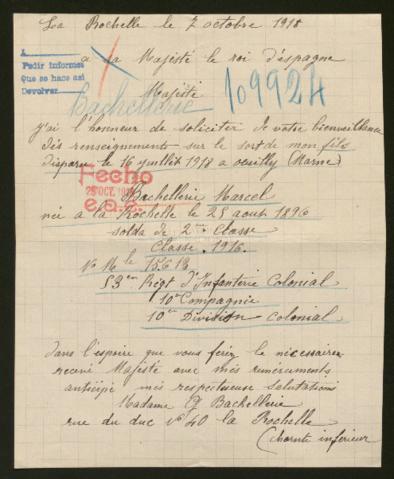 La Rochelle le 7 octobre 1918
A
Pedir informes
Que se hace asi
Devolver
a sa Majesté le roi d'espagne
Majesté
109924
Bachellerie
j'ai l'honneur de soliciter de votre bienveillance
dès renseignements sur le sort de mon fils
disparu le 16 juillet 1918 a oeuilly (Marne)
Fecho
25 OCT. 191
e.a.c.
Bachellerie Marcel
née a la Rochelle le 25 aout 1896
solda de 2me Classe
Classe 1916
No Mle 15613
53em Régt d'Infanterie Colonial
10e Compagnie
10em Division Colonial
dans l'espoire que vous ferez le nécessaire
recevé Majesté avec mès remerciments
anticipé mès respectueuse salutations
Madame Bachellerie
rue du duc No 40 la Rochelle
(charente inférieur